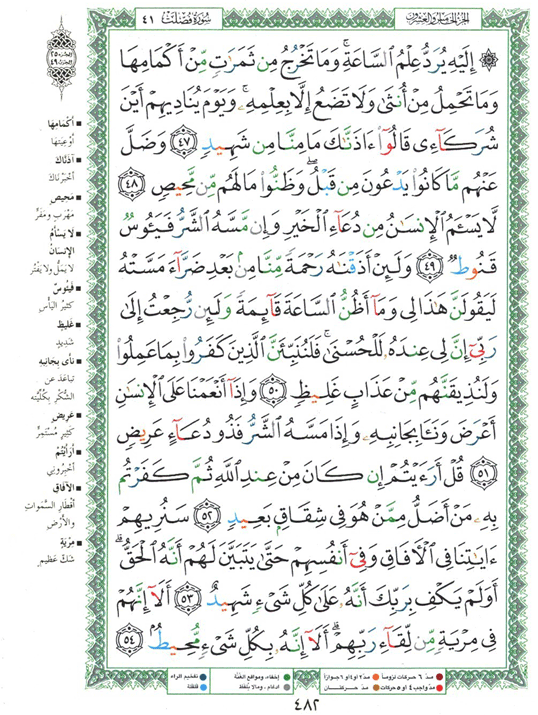 الجزء الخامس والعشرون
سورة فصلت ٤١
۞ إِلَيْهِ يُرَدُّ عِلْمُ ٱلسَّاعَةِ ۚ وَمَا تَخْرُجُ مِن ثَمَرَٰتٍ مِّنْ أَكْمَامِهَا
وَمَا تَحْمِلُ مِنْ أُنثَىٰ وَلَا تَضَعُ إِلَّا بِعِلْمِهِۦ ۚ وَيَوْمَ يُنَادِيهِمْ أَيْنَ
شُرَكَآءِى قَالُوٓا۟ ءَاذَنَّـٰكَ مَا مِنَّا مِن شَهِيدٍ ٤٧ وَضَلَّ
عَنْهُم مَّا كَانُوا۟ يَدْعُونَ مِن قَبْلُ ۖ وَظَنُّوا۟ مَا لَهُم مِّن مَّحِيصٍ ٤٨
لَّا يَسْـَٔمُ ٱلْإِنسَـٰنُ مِن دُعَآءِ ٱلْخَيْرِ وَإِن مَّسَّهُ ٱلشَّرُّ فَيَـُٔوسٌ
قَنُوطٌ ٤٩ وَلَئِنْ أَذَقْنَـٰهُ رَحْمَةً مِّنَّا مِنۢ بَعْدِ ضَرَّآءَ مَسَّتْهُ
لَيَقُولَنَّ هَـٰذَا لِى وَمَآ أَظُنُّ ٱلسَّاعَةَ قَآئِمَةً وَلَئِن رُّجِعْتُ إِلَىٰ
رَبِّىٓ إِنَّ لِى عِندَهُۥ لَلْحُسْنَىٰ ۚ فَلَنُنَبِّئَنَّ ٱلَّذِينَ كَفَرُوا۟ بِمَا عَمِلُوا۟
وَلَنُذِيقَنَّهُم مِّنْ عَذَابٍ غَلِيظٍ ٥٠ وَإِذَآ أَنْعَمْنَا عَلَى ٱلْإِنسَـٰنِ
أَعْرَضَ وَنَـَٔا بِجَانِبِهِۦ وَإِذَا مَسَّهُ ٱلشَّرُّ فَذُو دُعَآءٍ عَرِيضٍ
٥١ قُلْ أَرَءَيْتُمْ إِن كَانَ مِنْ عِندِ ٱللَّهِ ثُمَّ كَفَرْتُم
بِهِۦ مَنْ أَضَلُّ مِمَّنْ هُوَ فِى شِقَاقٍۭ بَعِيدٍ ٥٢ سَنُرِيهِمْ
ءَايَـٰتِنَا فِى ٱلْـَٔافَاقِ وَفِىٓ أَنفُسِهِمْ حَتَّىٰ يَتَبَيَّنَ لَهُمْ أَنَّهُ ٱلْحَقُّ ۗ
أَوَلَمْ يَكْفِ بِرَبِّكَ أَنَّهُۥ عَلَىٰ كُلِّ شَىْءٍ شَهِيدٌ ٥٣ أَلَآ إِنَّهُمْ
فِى مِرْيَةٍ مِّن لِّقَآءِ رَبِّهِمْ ۗ أَلَآ إِنَّهُۥ بِكُلِّ شَىْءٍ مُّحِيطٌۢ ٥٤
■ أَكْمَامِهَا
أَوْعِيَتِهَا
■ آذَنَّاكَ
أَخْبَرْنَاكَ
■ مَحِيصٍ
مَهْرَبٍ وَمَفَرٍّ
■ لا يَسْأَمُ
الإنْسَانُ
لا يَمَلُّ وَلا يَفْتُرُ
■ فَيَئُوسٌ
كَثِيرُ اليَأْسِ
■ غَلِيظٍ
شَدِيدٍ
■ نَأَى بِجَانِبِهِ
تَبَاعَدَ عَنِ
الشُّكْرِ بِكُلِّيَّتِهِ
■ عَرِيضٍ
كَثِيرٍ مُسْتَمِرٍّ
■ أَرَأَيْتُمْ
أَخْبِرُونِي
■ الآفَاقِ
أَقْطَارِ السَّمَوَاتِ
وَالأَرْضِ
■ مِرْيَةٍ
شَكٍّ عَظِيمٍ
مدّ ٦ حركات لزوماً
مدّ ٢ أو ٤ أو ٦ جوازاً
مدّ واجب ٤ أو ٥ حركات
مدّ حركتان
إخفاء، ومواقع الغُنَّة
إدغام، وما لا يُلفظ
تفخيم الراء
قلقلة
٤٨٢